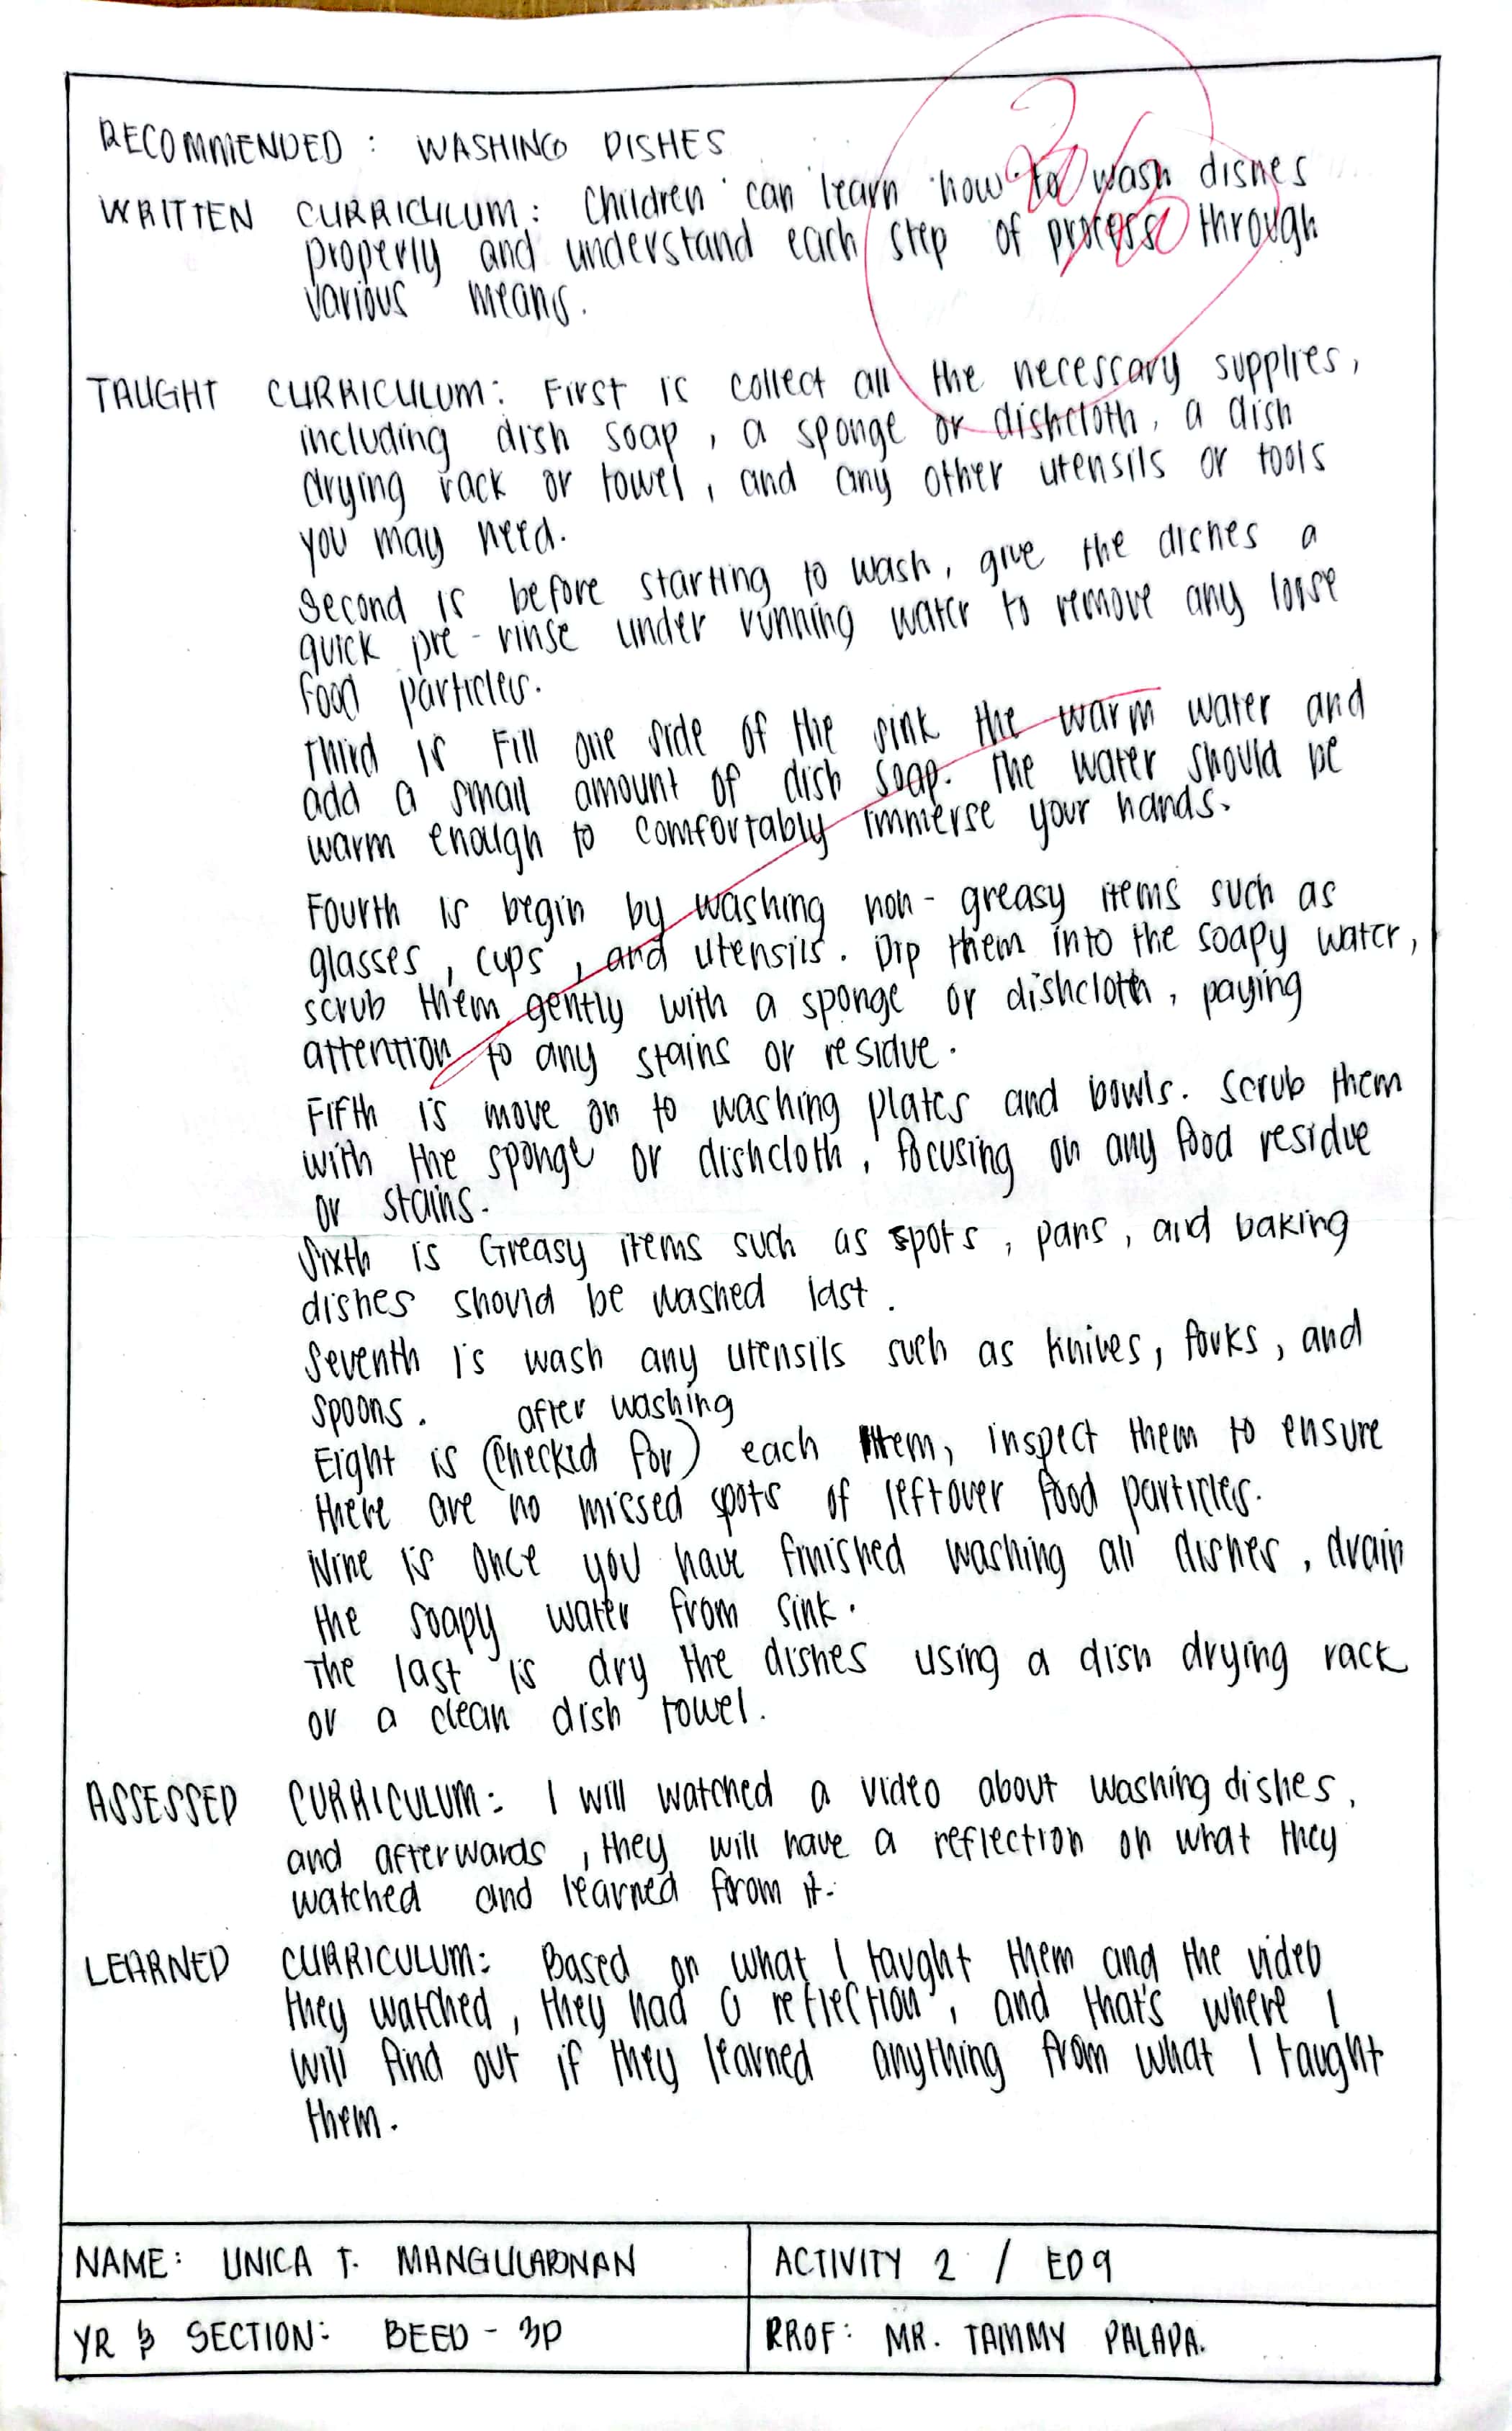 RECOMMENDED : WASHING DISHES
WRITTEN CURRICULUM: Children can learn how to wash dishes
properly and understand each step of process through
various means.
TAUGHT CURRICULUM: First is collect all the necessary supplies,
including dish soap, a sponge or dishcloth, a dish
drying rack or towel, and any other utensils or tools
you may need.
Second is before starting to wash, give the dishes a
quick pre-rinse under running water to remove any loose
food particles.
Third is Fill one side of the sink the warm water and
add a small amount of dish soap. The water should be
warm enough to comfortably immerse your hands.
Fourth is begin by washing non-greasy items such as
glasses, cups, and utensils. Dip them into the soapy water,
scrub them gently with a sponge or dishcloth, paying
attention to any stains or residue.
Fifth is move on to washing plates and bowls. Scrub them
with the sponge or dishcloth, focusing on any food residue
or stains.
Sixth is Greasy items such as spots, pans, and baking
dishes should be washed last.
Seventh is wash any utensils such as knives, forks, and
spoons. after washing
Eight is (checked for) each item, inspect them to ensure
there are no missed spots of leftover food particles.
Nine is once you have finished washing all dishes, drain
the soapy water from sink.
The last is dry the dishes using a dish drying rack
or a clean dish towel.
ASSESSED CURRICULUM: I will watched a video about washing dishes,
and afterwards, they will have a reflection on what they
watched and learned from it.
LEARNED CURRICULUM: Based on what I taught them and the video
they watched, they had a reflection, and that's where I
will find out if they learned anything from what I taught
them.
NAME: UNICA T. MANGULABNAN
ACTIVITY 2 / ED9
YR & SECTION: BEED - 3D
PROF: MR. TAMMY PALAPA.